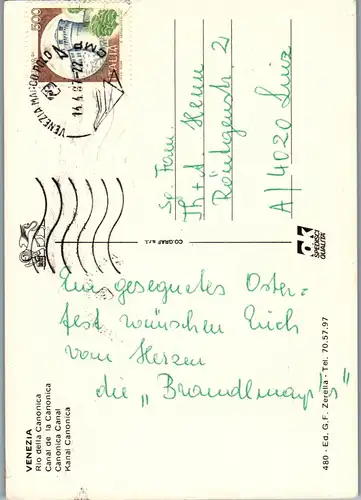 500
ITALIA
VENEZIA MARCO POLO
14.4.87-22
Sp. Fam.
Th + A Henn
Röntgenstr. 2
A/4020 Linz
CO.GRAF s.r.l.
SPEDISCI QUALITÀ
Ein gesegnetes Oster=
fest wünschen Euch
vom Herzen
die „Brandlmayr's"
VENEZIA
Rio della Canonica
Canal de la Canonica
Canonica Canal
Kanal Canonica
480 - Ed. G.F. Zerella - Tel. 70.57.97